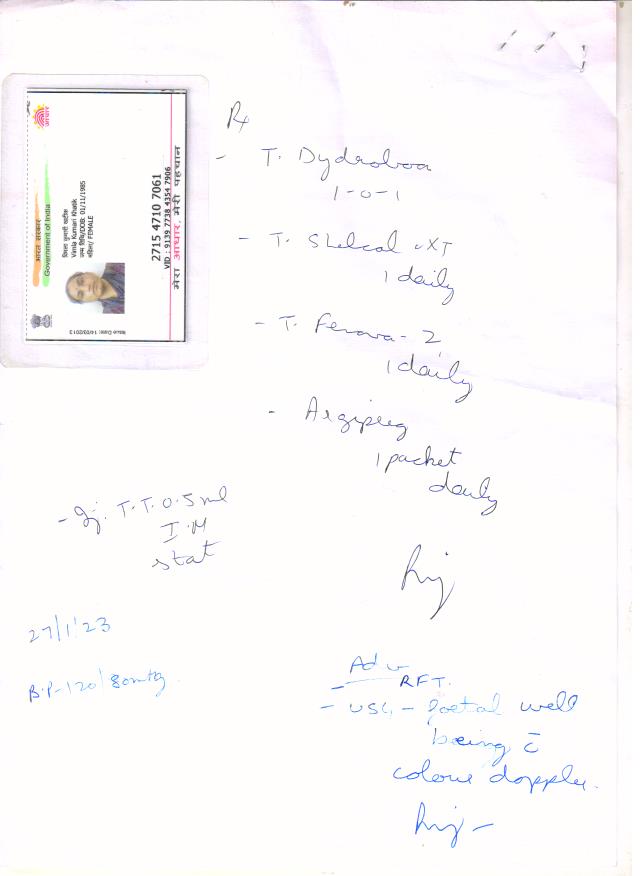 भारत सरकार
Government of India
विमला कुमारी खटीक
Vimla Kumari Khatik
जन्म तिथि/DOB: 01/11/1985
महिला/ FEMALE
Issue Date: 14/03/2013
2715 4710 7061
VID : 9139 7738 4354 7906
मेरा आधार, मेरी पहचान
Rx
- T. Dydroboon
1-0-1
- T. Shelcal XT
1 daily
- T. Ferova-Z
1 daily
- Argipreg
1 packet
daily
- Inj. T.T. 0.5 ml
I.M
stat
27/1/23
B.P-120/80mmHg
Adv
- RFT.
- USG - foetal well
being c̄
colour doppler.